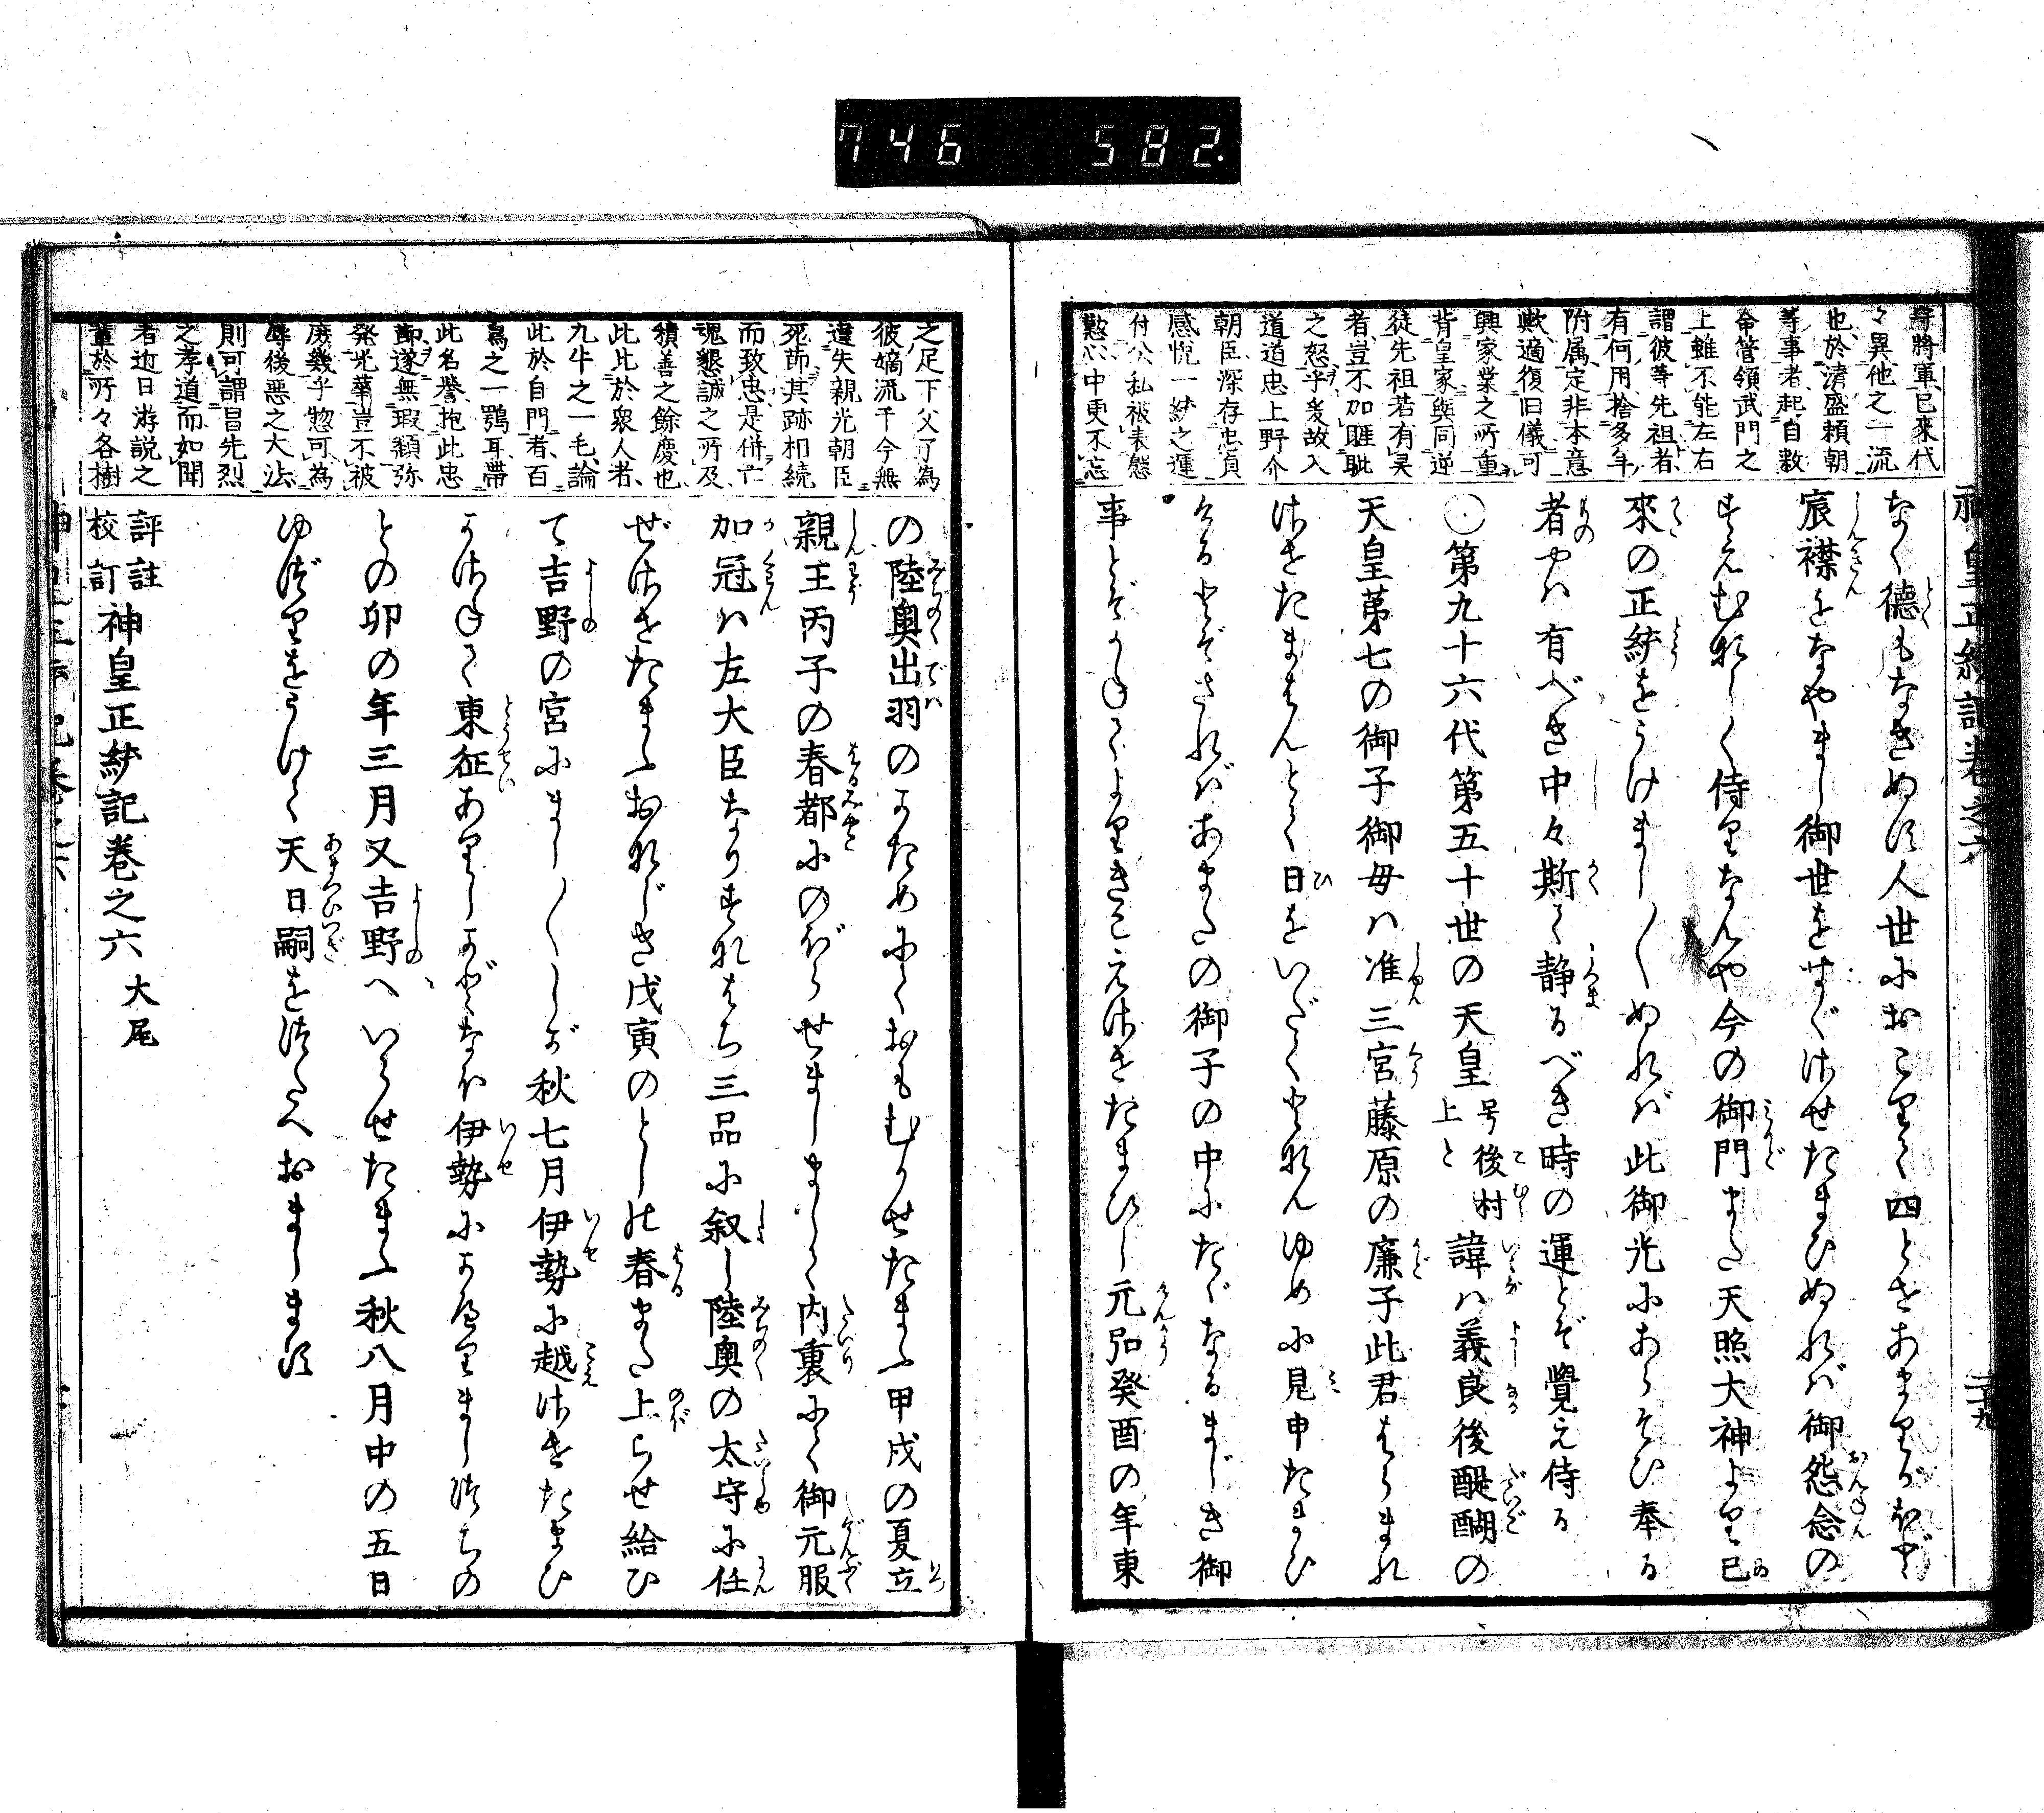 746 582.
神皇正統記巻之六 二十九
将将軍已来代
々異他之一流
也於清盛頼朝
等事者起自数
命管領武門之
上雖不能左右
謂彼等先祖者
有何用捨多年
附属定非本意
歟適復旧儀可
興家業之所重
背皇家与同逆
徒先祖若有昊
者豈不加匪耻
之怒乎爰故入
道道忠上野介
朝臣深存忠貞
感悦一統之運
付公私被表態
懃心中更不忘
なく徳もなきぬす人世におこりて四とせあまりがほど
宸襟をなやまし御世をすぐさせたまひぬれば御怨念の
すゑむなしく侍りなんや今の御門また天照大神より已
来の正統をうけましましぬれば此御光にあらそひ奉る
者やは有べき中々斯て静るべき時の運とぞ覚え侍る
〇第九十六代第五十世の天皇号後村上と諱は義良後醍醐の
天皇第七の御子御母は准三宮藤原の廉子此君はらまれ
させたまはんとて日をいだくとなんゆめに見申たまひ
けるとぞさればあまたの御子の中にたゞなるまじき御
事とぞかねてよりきこえさせたまひし元弘癸酉の年東
之足下父了為
彼嫡流于今無
違失親光朝臣
死節其跡相続
而致忠是併亡
魂懇誠之所及
積善之餘慶也
此比於衆人者
九牛之一毛論
此於自門者百
鳥之一鶚耳帯
此名誉抱此忠
節遂無瑕纇弥
発光華豈不被
庶幾乎惣可為
辱後悪之大法
則可謂昌先烈
之孝道而如聞
者近日游説之
輩於所々各樹
の陸奥出羽のかためにておもむかせたまふ甲戌の夏立
親王丙子の春都にのぼらせましまして内裏にて御元服
加冠は左大臣なりすなはち三品に叙し陸奥の太守に任
ぜさせたまふおなじき戊寅のとしの春また上らせ給ひ
て吉野の宮にましましゝが秋七月伊勢に越させたまひ
かさねて東征ありしかどなほ伊勢にかへりましつちの
との卯の年三月又吉野へいらせたまふ秋八月中の五日
ゆづりをうけて天日嗣をつたへおまします
評註校訂神皇正統記巻之六 大尾